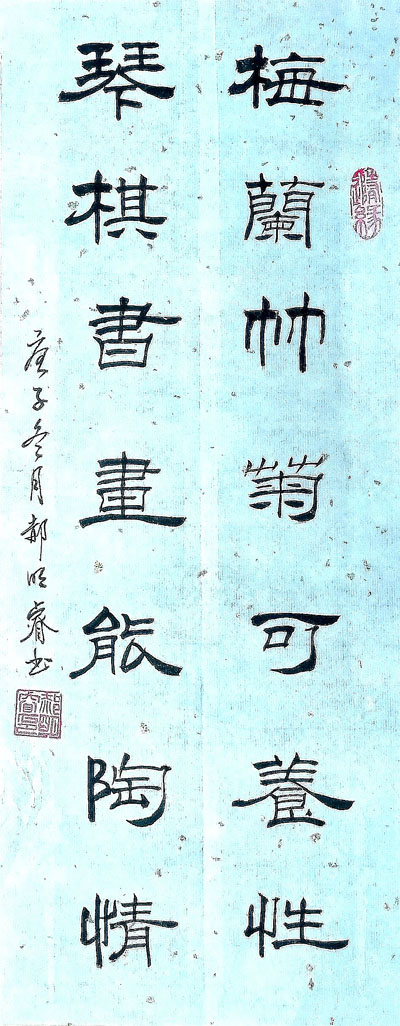 梅蘭竹菊可養性
琴棋書畫能陶情
庚子冬月郝明睿書